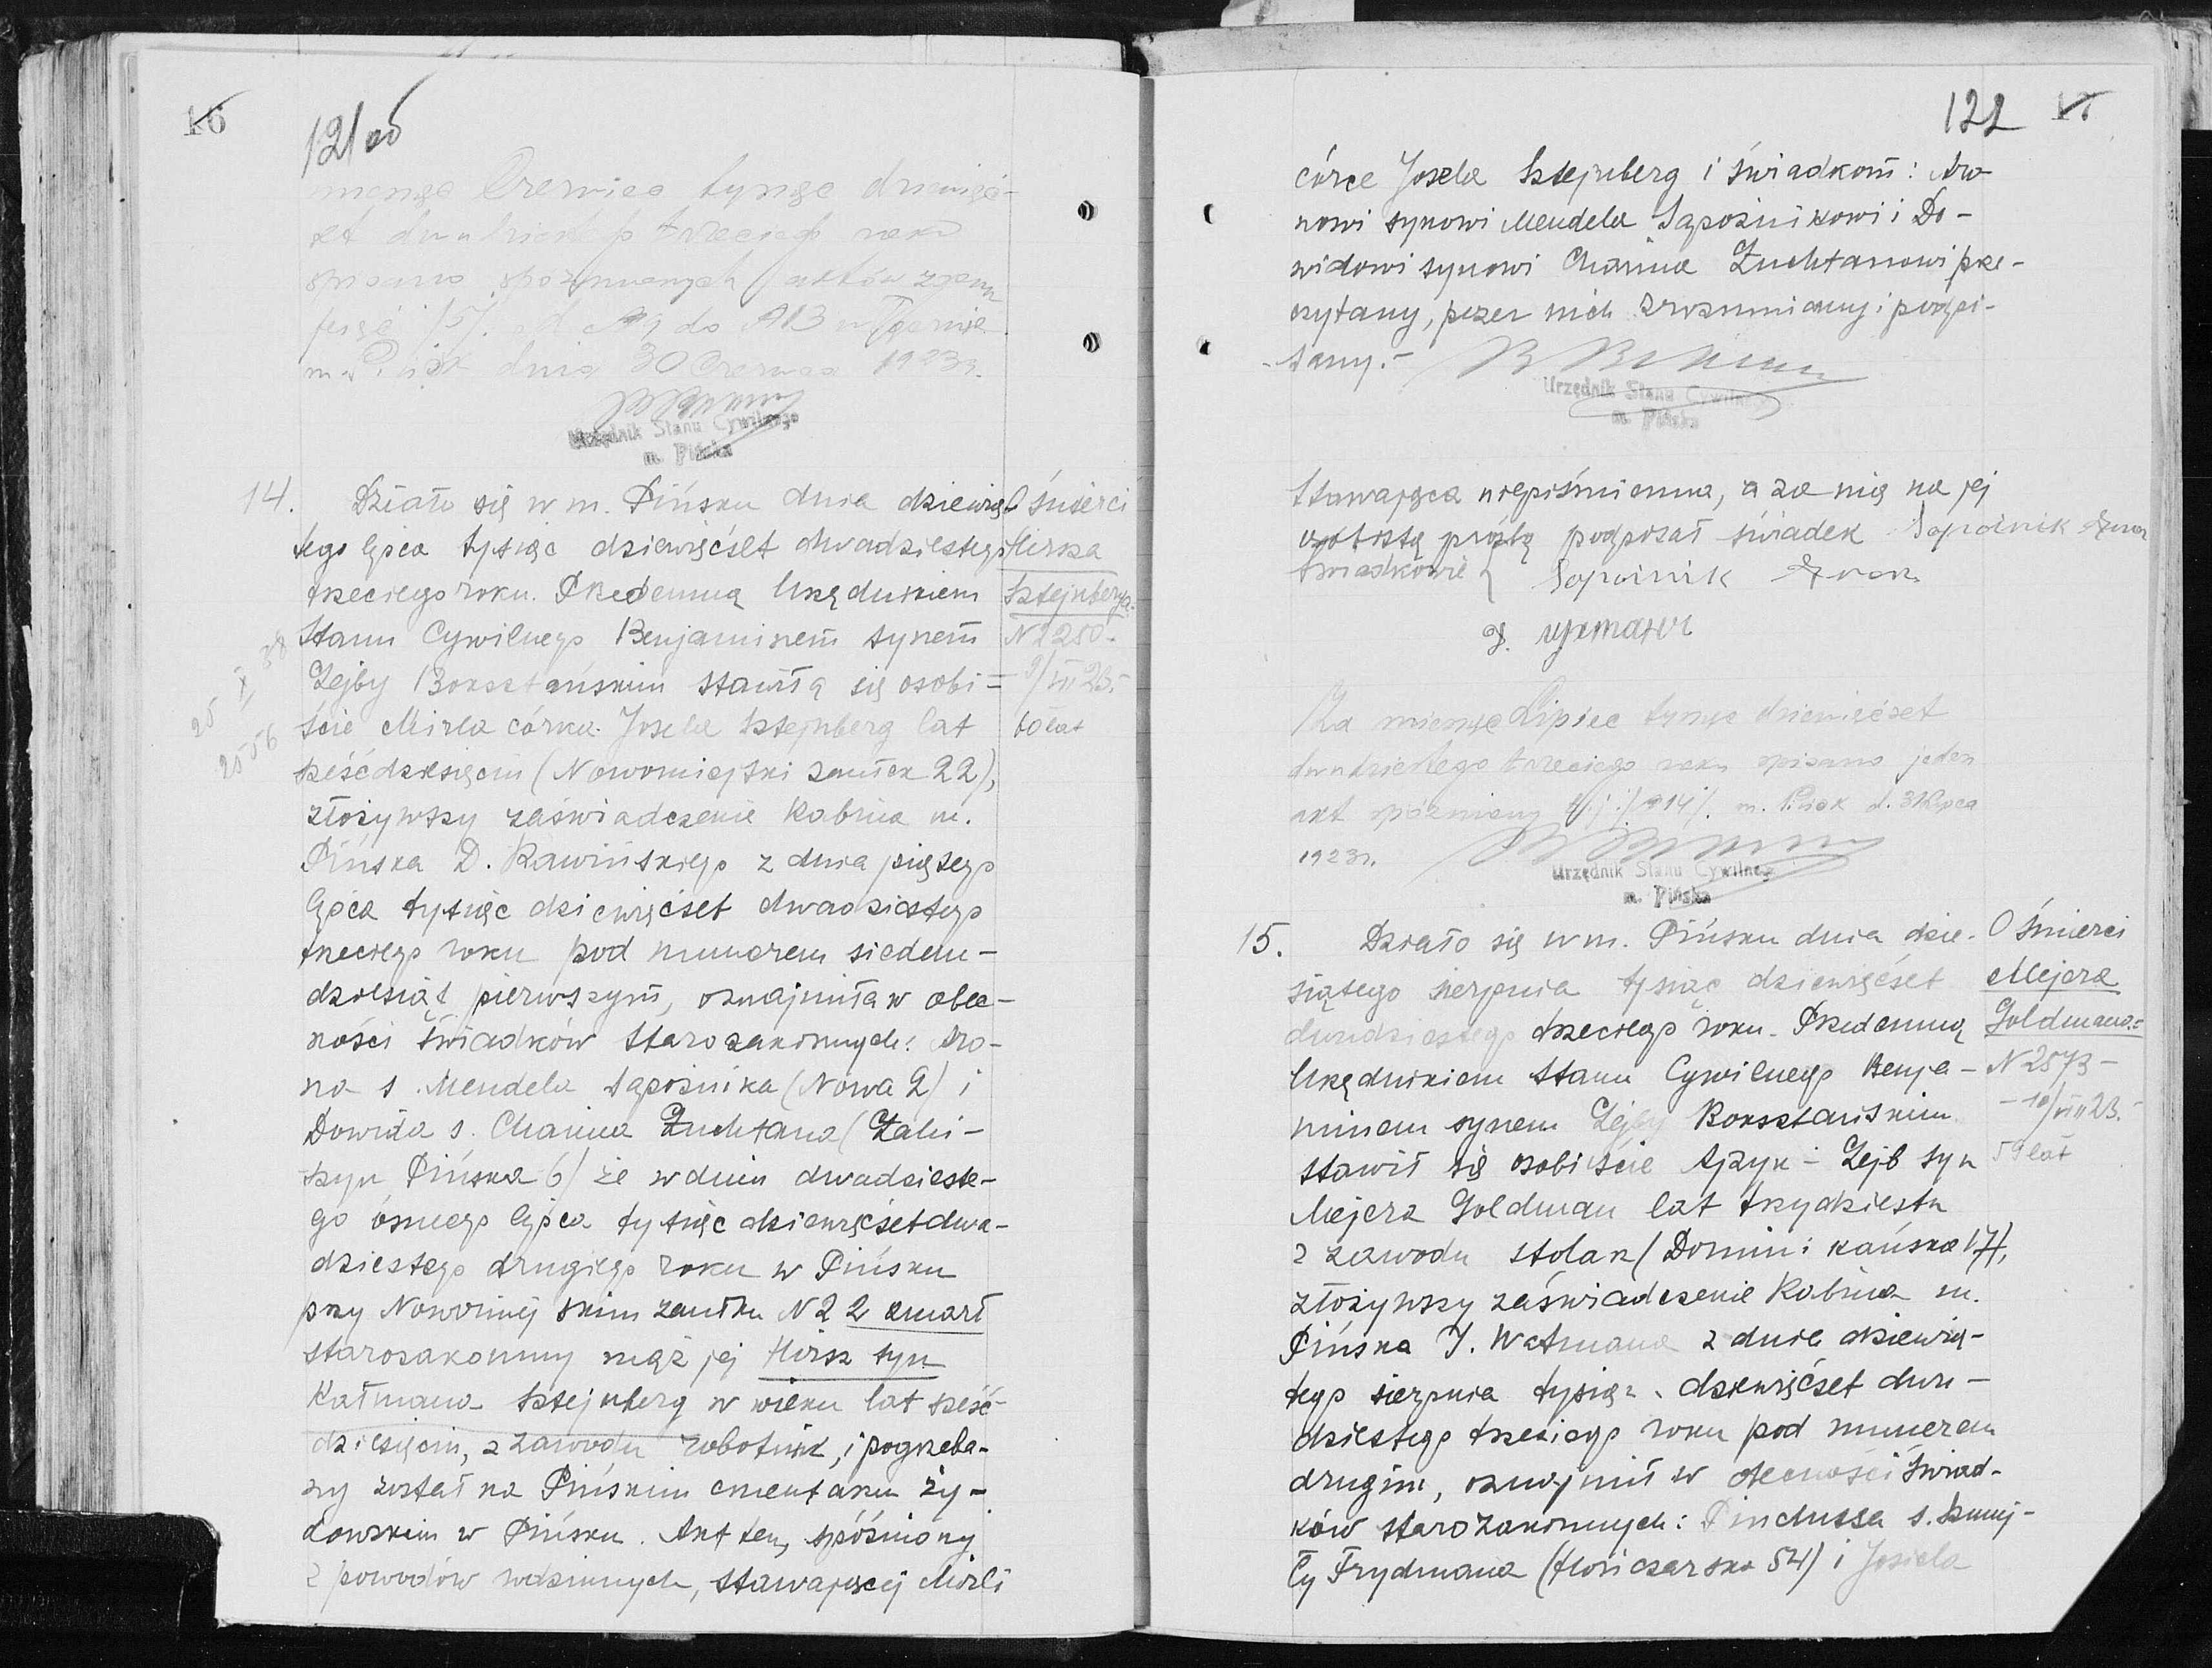 16
121 об
miesiąc Czerwiec tysiąc dziewięć-
set dwudziestego trzeciego roku
spisano spóźnionych aktów
pięć /5/. od № 9 do №13 w
m. Pińsk dnia 30 Czerwca 1923 r.
Urzędnik Stanu Cywilnego
m. Pińska
14. Działo się w m. Pińsku dnia dziewią-
tego lipca tysiąc dziewięćset dwadziestego
trzeciego roku. Przedemną Urzędnikiem
Stanu Cywilnego Benjaminem synem
Zejby Boksztańskim stawiła się osobi=
ście Mirla córka Josela Sztejnberg lat
sześćdziesięciu (Nowomiejski zaułek 22),
złożywszy zaświadczenie Rabina m.
Pińska D. Rawińskiego z dnia piątego
lipca tysiąc dziewięćset dwadziestego
trzeciego roku pod numerem siedem-
dziesiąt pierwszym, oznajmiła w obec-
ności świadków starozakonnych: Aro-
na s. Mendela Sapożnika (Nowa 9) i
Dowida s. Chaima Zuchtana (Zahi-
szyn Pińska 6) że w dniu dwadzieste-
go ósmego lipca tysiąc dziewięćset dwa-
dziestego drugiego roku w Pińsku
przy Nowomiejskim zaułku N 22 zmarł
starozakonny mąż jej Hirsz syn
Kałmana Sztejnberg w wieku lat sześć-
dziesięciu, z zawodu robotnik, i pogrzeba-
ny został na Pińskim cmentarzu ży-
dowskim w Pińsku. Akt ten, spóźniony
z powodów rodzinnych, stawającej Mirli
O śmierci
Hirsza
Sztejnberga.
N 2250-
9/VII 23.-
60 lat
25 X 38
2556
122 17
córce Josela Sztejnberg i świadkom: Aro-
nowi synowi Mendela Sapożnikowi i Do-
widowi synowi Chaima Zuchtanowi prze-
czytany, przez nich zrozumiany i podpi-
sany.-
Urzędnik Stanu Cywilnego
m. Pińska
Stawająca niepiśmienna, a za nią na jej
osobistą prośbę podpisał świadek Sapożnik
świadkowie { Sapożnik
Za miesiąc Lipiec tysiąc dziewięćset
dwudziestego trzeciego roku spisano jeden
akt spóźniony /1/ №14/. m. Pińsk d. 31 Lipca
1923 r.
Urzędnik Stanu Cywilnego
m. Pińska
15. Działo się w m. Pińsku dnia dzie-
siątego sierpnia tysiąc dziewięćset
dwudziestego trzeciego roku. Przedemną
Urzędnikiem Stanu Cywilnego Benja-
minem synem Zejby Boksztańskim
stawił się osobiście Ajzyk-Zejb syn
Mejera Goldman lat trzydziestu
z zawodu stolarz (Dominikańska 17),
złożywszy zaświadczenie Rabina m.
Pińska J. Watmana z dnia dziewią-
tego sierpnia tysiąc dziewięćset dwu-
dziestego trzeciego roku pod numerem
drugim, oznajmił w obecności świad-
ków starozakonnych: Pinchusa s. Szmuj-
ły Frydmana (Hończarska 54) i Josiela
O śmierci
Mejera
Goldmana.=
N 2573-
-10/VIII 23.-
59 lat